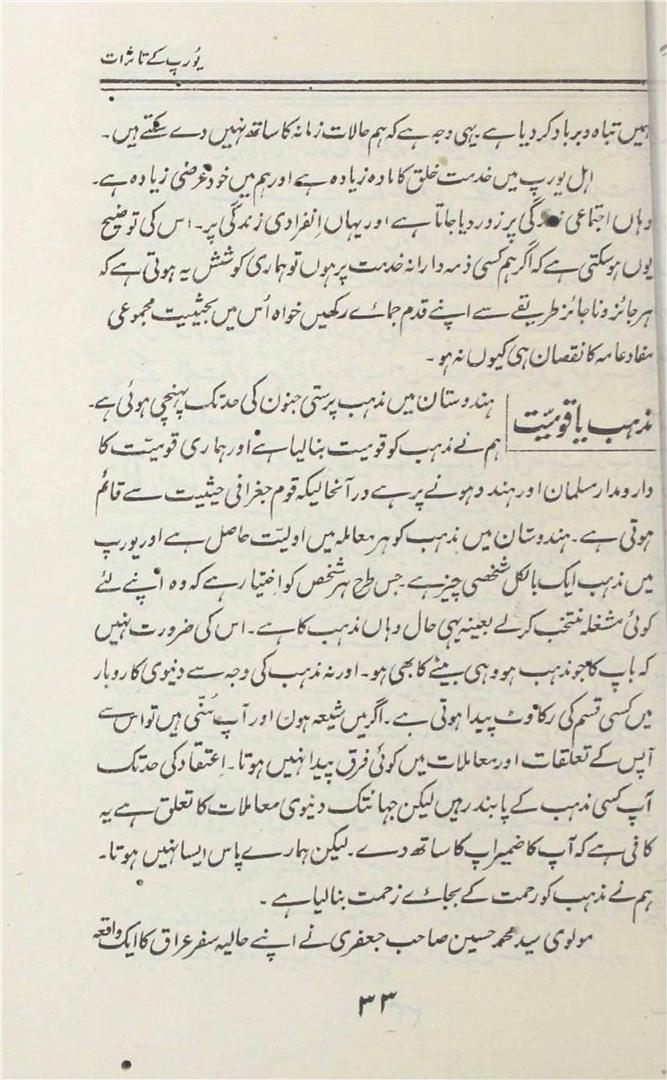 یورپ کے تاثرات
ہمیں تباہ و برباد کر دیا ہے۔ یہی وجہ ہے کہ ہم حالات زمانہ کا ساتھ نہیں دے سکتے ہیں۔
اہل یورپ میں خدمت خلق کا مادہ زیادہ ہے اور ہم میں خود غرضی زیادہ ہے۔
وہاں اجتماعی زندگی پر زور دیا جاتا ہے اور یہاں اِنفرادی زندگی پر۔ اس کی توضیح
یوں ہو سکتی ہے کہ اگر ہم کسی ذمہ دارانہ خدمت پر ہوں تو ہماری کوشش یہ ہوتی ہے کہ
ہر جائز و ناجائز طریقے سے اپنے قدم جمائے رکھیں خواہ اُس میں بحیثیت مجموعی
مفاد عامہ کا نقصان ہی کیوں نہ ہو۔
مذہب یا قومیّت
ہندوستان میں مذہب پرستی جنون کی حد تک پہنچی ہوئی ہے۔
ہم نے مذہب کو قومیت بنا لیا ہے اور ہماری قومیّت کا
دار و مدار مسلمان اور ہندو ہونے پر ہے درآنحالیکہ قوم جغرافی حیثیت سے قائم
ہوتی ہے۔ ہندوستان میں مذہب کو ہر معاملہ میں اولیّت حاصل ہے اور یورپ
میں مذہب ایک بالکل شخصی چیز ہے۔ جس طرح ہر شخص کو اختیار ہے کہ وہ اپنے لئے
کوئی مشغلہ منتخب کرلے بعینہ یہی حال وہاں مذہب کا ہے۔ اس کی ضرورت نہیں
کہ باپ کا جو مذہب ہو وہی بیٹے کا بھی ہو۔ اور نہ مذہب کی وجہ سے دنیوی کاروبار
میں کسی قسم کی رکاوٹ پیدا ہوتی ہے۔ اگر میں شیعہ ہون اور آپ سُنّی ہیں تو اس سے
آپس کے تعلقات اور معاملات میں کوئی فرق پیدا نہیں ہوتا۔ اِعتقاد کی حد تک
آپ کسی مذہب کے پابند رہیں لیکن جہانتک دنیوی معاملات کا تعلق ہے یہ
کافی ہے کہ آپ کا ضمیر آپ کا ساتھ دے۔ لیکن ہمارے پاس ایسا نہیں ہوتا۔
ہم نے مذہب کو رحمت کے بجائے زحمت بنا لیا ہے۔
مولوی سید محمد حسین صاحب جعفری نے اپنے حالیہ سفر عراق کا ایک واقعہ
۳۳